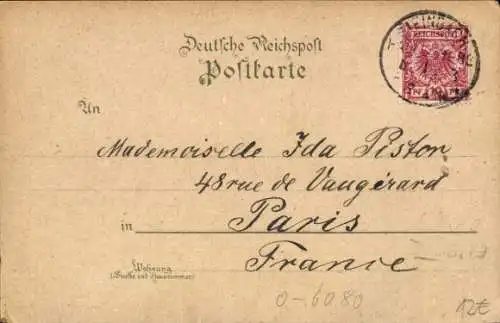 Deutsche Reichspost
Postkarte
REICHSPOST
An
Mademoiselle Ida Pistor
48 rue de Vaugérard
in Paris
France
Wohnung
(Straße und Hausnummer)
0-6080
12€